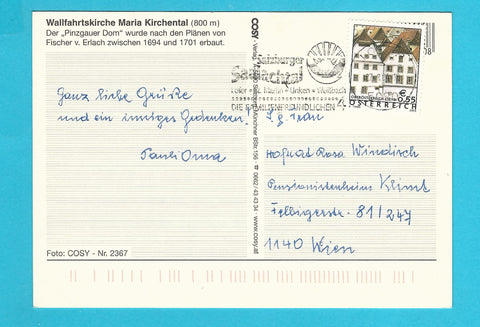 Wallfahrtskirche Maria Kirchental (800 m)
Der „Pinzgauer Dom“ wurde nach den Plänen von
Fischer v. Erlach zwischen 1694 und 1701 erbaut.
Ganz liebe Grüße
und ein inniges Gedenken!
Pauli Oma
Foto: COSY - Nr. 2367
COSY
0662/43 43 34
www.cosy.at
Salzburger
Saalachtal
Lofer St. Martin Unken Weißbach
DIE FAMILIENFREUNDLICHEN
€ 0,55
ÖSTERREICH
Frau
Hofrat Rosa Windisch
Pensionistenheim Klimt
Felbigerstr. 81/247
1140 Wien